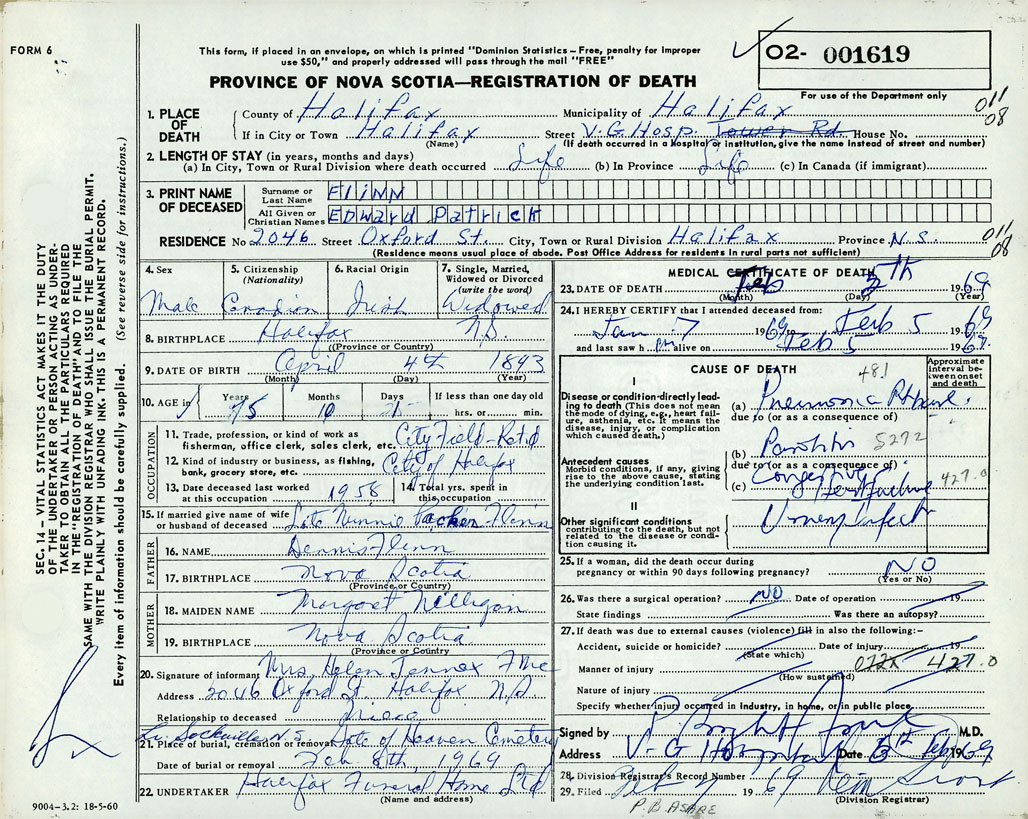 FORM 6
This form, if placed in an envelope, on which is printed "Dominion Statistics – Free, penalty for improper
use $50," and properly addressed will pass through the mail "FREE"
PROVINCE OF NOVA SCOTIA—REGISTRATION OF DEATH
02- 001619
For use of the Department only
1. PLACE OF DEATH
County of Halifax Municipality of Halifax 011 08
If in City or Town Halifax Street V.G Hosp. Tower Rd. House No.
(Name) (If death occurred in a hospital or institution, give the name instead of street and number)
2. LENGTH OF STAY (in years, months and days)
(a) In City, Town or Rural Division where death occurred Life (b) In Province Life (c) In Canada (if immigrant)
3. PRINT NAME OF DECEASED
Surname or Last Name FLINN
All Given or Christian Names Edward Patrick
RESIDENCE No 2046 Street Oxford St. City, Town or Rural Division Halifax Province N.S. 011 08
(Residence means usual place of abode. Post Office Address for residents in rural parts not sufficient)
4. Sex
Male
5. Citizenship (Nationality)
Canadian
6. Racial Origin
Irish
7. Single, Married, Widowed or Divorced (write the word)
Widowed
8. BIRTHPLACE Halifax N.S.
(Province or Country)
9. DATE OF BIRTH April 4th 1893
(Month) (Day) (Year)
10. AGE in Years 75 Months 10 Days 1 If less than one day old
hrs. or min.
OCCUPATION
11. Trade, profession, or kind of work as
fisherman, office clerk, sales clerk, etc. City Field - Retd
12. Kind of industry or business, as fishing,
bank, grocery store, etc. City of Halifax
13. Date deceased last worked
at this occupation 1958
14. Total yrs. spent in
this occupation
15. If married give name of wife
or husband of deceased Late Minnie Flinn
FATHER
16. NAME Dennis Flinn
17. BIRTHPLACE Nova Scotia
(Province or Country)
MOTHER
18. MAIDEN NAME Margaret
19. BIRTHPLACE Nova Scotia
(Province or Country)
20. Signature of informant Mrs. Helen
Address 2046 Oxford St. Halifax N.S.
Relationship to deceased Niece
Lr. Sackville N.S.
21. Place of burial, cremation or removal Gate of Heaven Cemetery
Date of burial or removal Feb 8th, 1969
22. UNDERTAKER Halifax Funeral Home Ltd
(Name and address)
9004–3.2: 18-5-60
MEDICAL CERTIFICATE OF DEATH
23. DATE OF DEATH Feb 5th 1969
(Month) (Day) (Year)
24. I HEREBY CERTIFY that I attended deceased from:
Jan 7 1969 to Feb 5 1969
and last saw him alive on Feb 5 1969.
CAUSE OF DEATH 481
Approximate interval between onset and death
I
Disease or condition directly leading to death (This does not mean the mode of dying, e.g., heart failure, asthenia, etc. It means the disease, injury, or complication which caused death.)
(a) Pneumonia
due to (or as a consequence of)
(b) Parotitis 5272
Antecedent causes
Morbid conditions, if any, giving rise to the above cause, stating the underlying condition last.
due to (or as a consequence of)
(c) Congestive Heart failure 427.0
II
Other significant conditions
contributing to the death, but not related to the disease or condition causing it.
Urinary Infect
25. If a woman, did the death occur during
pregnancy or within 90 days following pregnancy? NO
(Yes or No)
26. Was there a surgical operation? NO Date of operation 19
State findings Was there an autopsy?
27. If death was due to external causes (violence) fill in also the following:–
Accident, suicide or homicide? Date of injury 19
(State which)
Manner of injury 427.0
(How sustained)
Nature of injury
Specify whether injury occurred in industry, in home, or in public place.
Signed by M.D.
Address V-G Hospital Date Feb 1969
28. Division Registrar's Record Number
29. Filed Feb 7 1969
(Division Registrar)
P. B ASARE
SEC. 14 – VITAL STATISTICS ACT MAKES IT THE DUTY
OF THE UNDERTAKER OR PERSON ACTING AS UNDER-
TAKER TO OBTAIN ALL THE PARTICULARS REQUIRED
IN THE "REGISTRATION OF DEATH" AND TO FILE THE
SAME WITH THE DIVISION REGISTRAR WHO SHALL ISSUE THE BURIAL PERMIT.
WRITE PLAINLY WITH UNFADING INK. THIS IS A PERMANENT RECORD.
Every item of information should be carefully supplied. (See reverse side for instructions.)